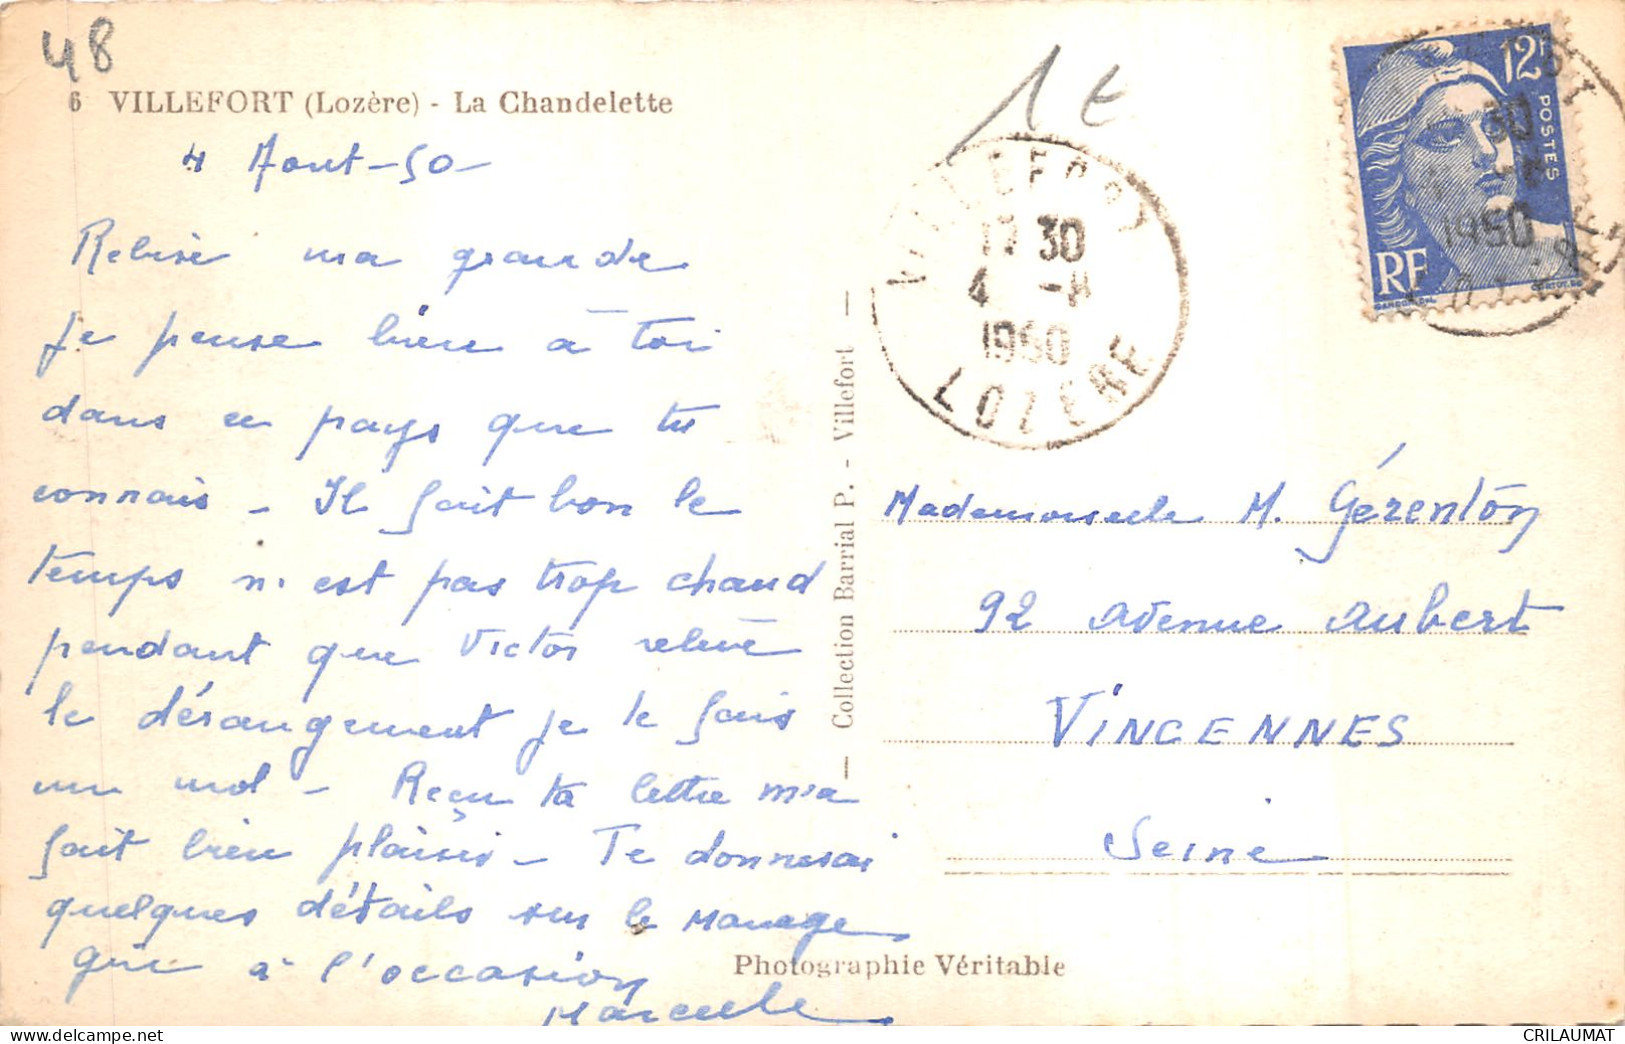 48
6 VILLEFORT (Lozère) - La Chandelette
1 €
4 Aout - 50 -
ma grande
je pense bien à toi
dans ce pays que tu
connais - Il fait bon le
temps n'est pas trop chaud
pendant que Victor relève
le dérangement je te fais
un mot - Reçu ta lettre m'a
fait bien plaisir - Te donnerai
quelques détails sur le manage
que à l'occasion
Marcelle
— Collection Barrial P. - Villefort —
Photographie Véritable
VILLEFORT
17 30
4 -8
1950
LOZERE
12F
POSTES
RF
30
1950
Mademoiselle M. Gérenton
92 avenue Aubert
VINCENNES
Seine
CRILAUMAT